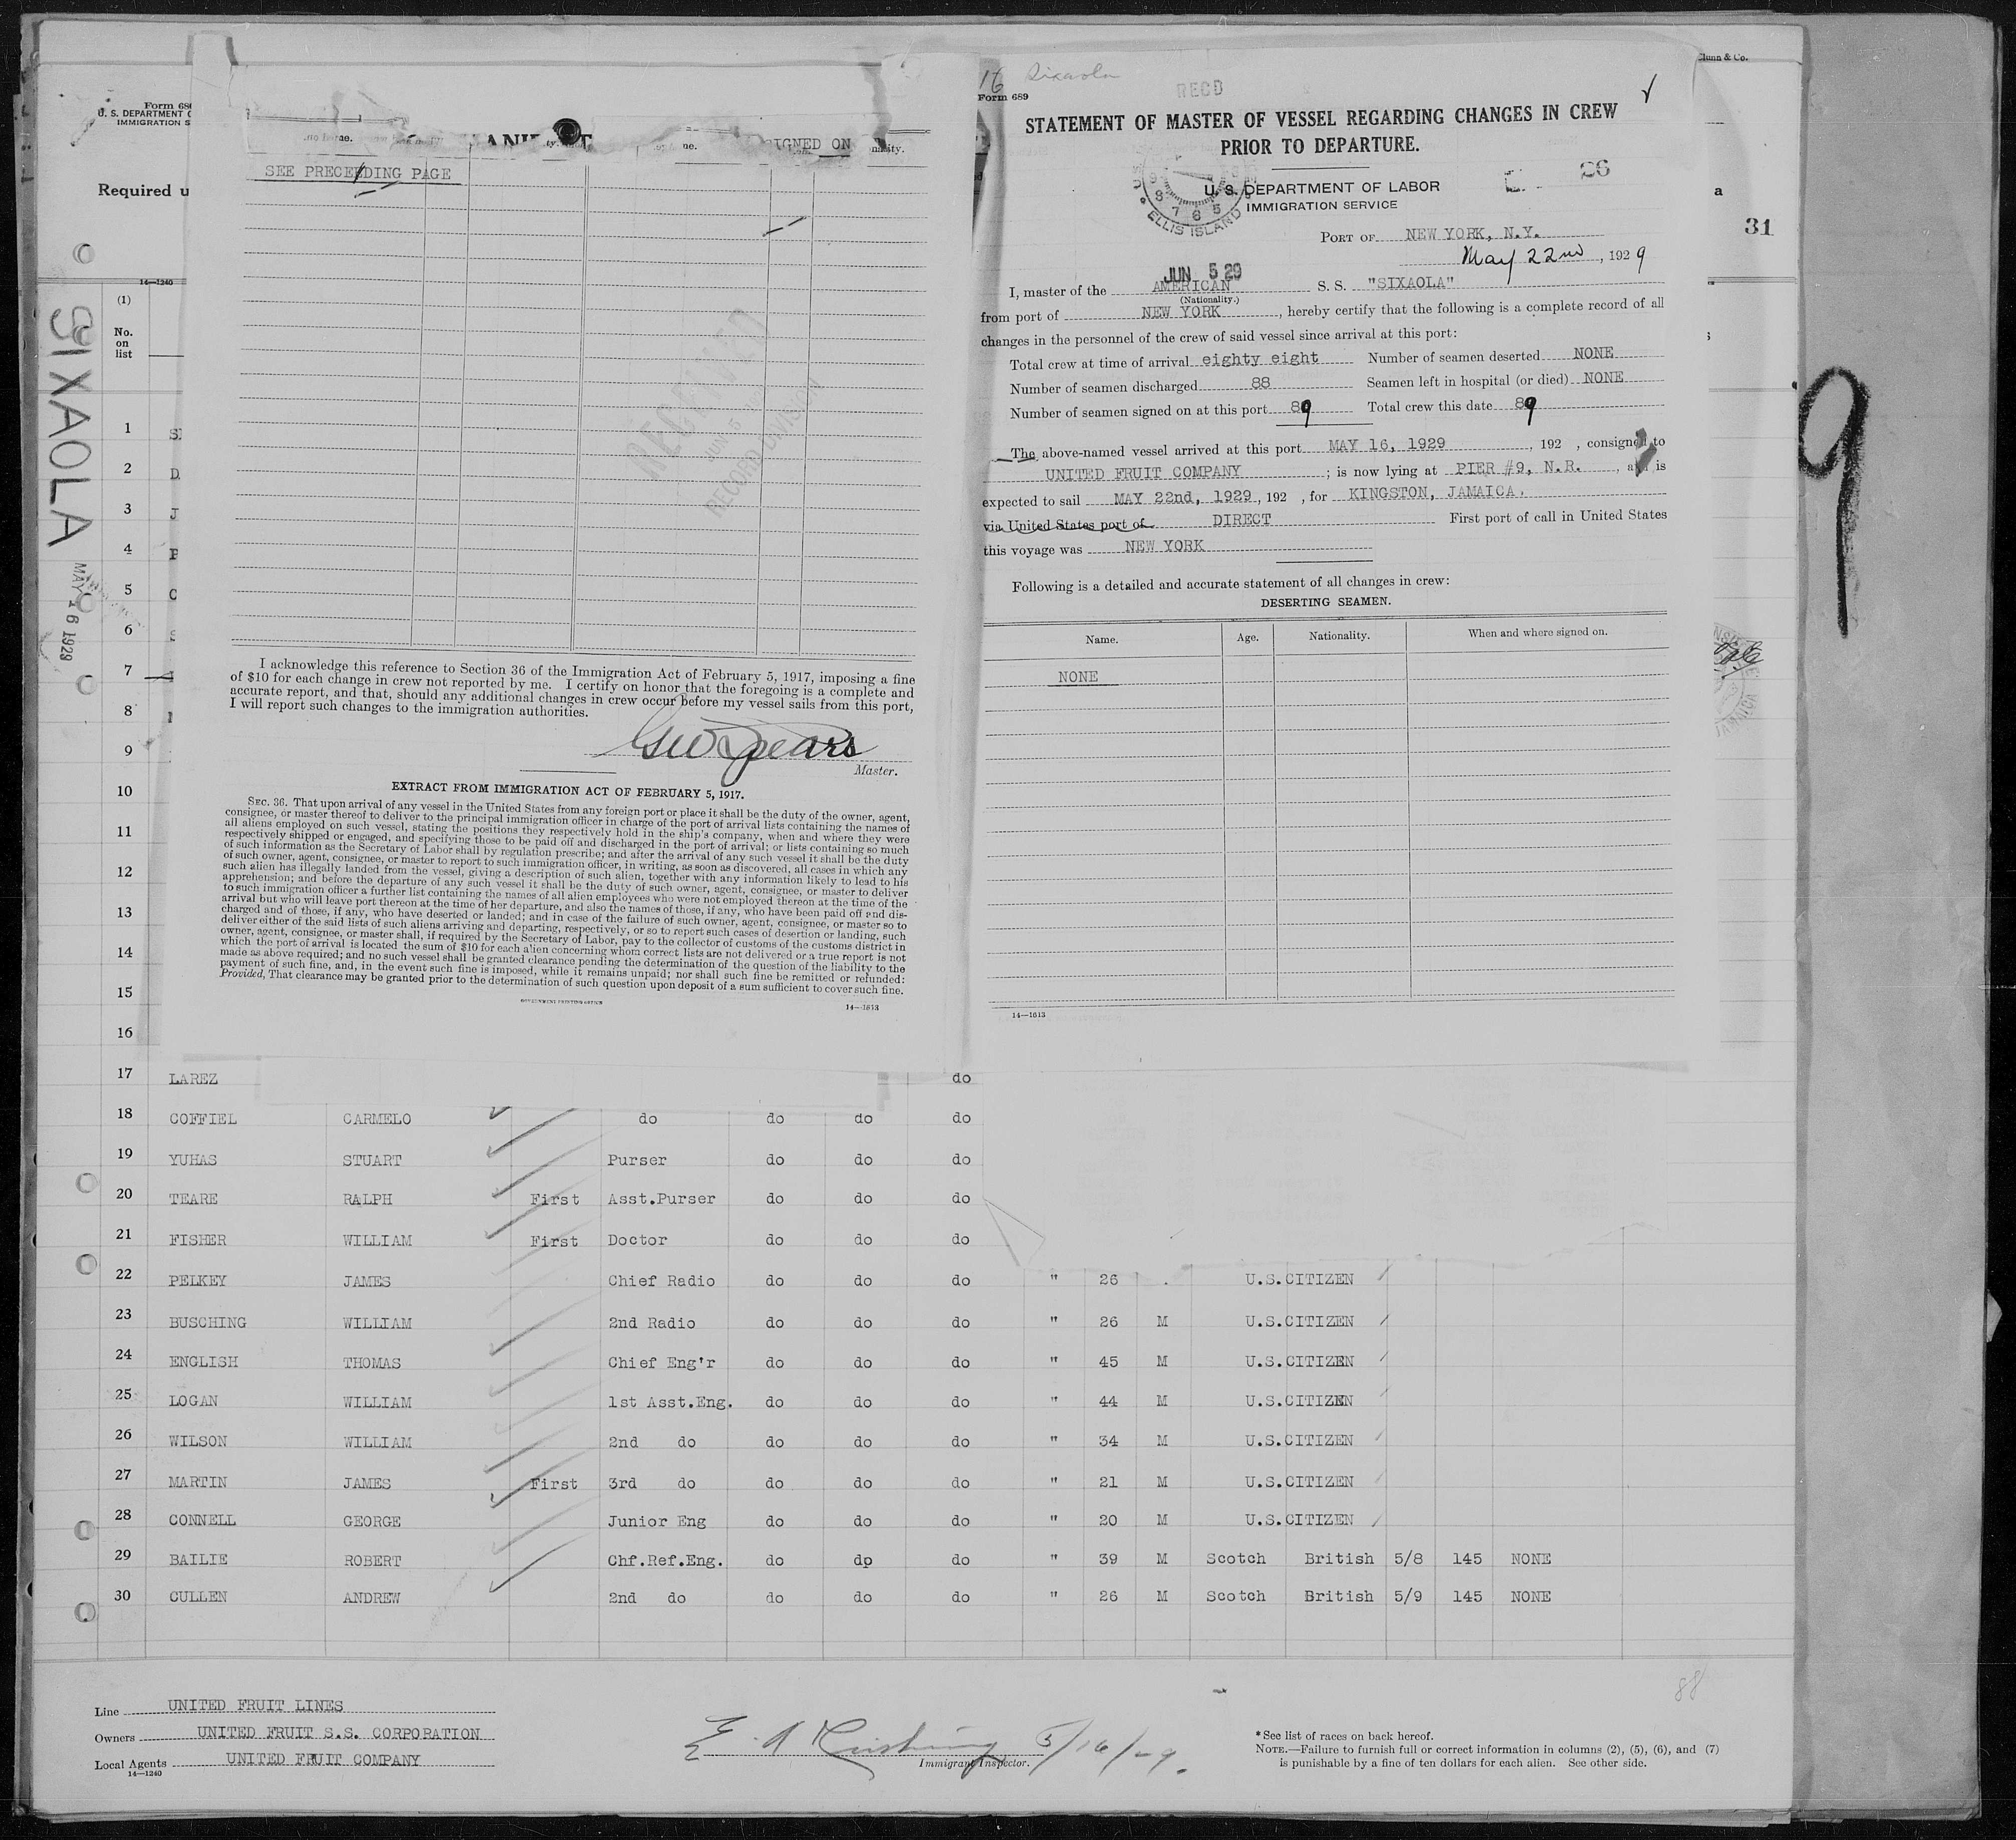 Form 689
U. S. DEPARTMENT
IMMIGRATION S
Required u
14—1240
(1)
No.
on
list
SIXAOLA
MAY 16 1929
SIGNED ON
SEE PRECEEDING PAGE
RECEIVED
JUN 5
RECORD DIVISION
I acknowledge this reference to Section 36 of the Immigration Act of February 5, 1917, imposing a fine
of $10 for each change in crew not reported by me. I certify on honor that the foregoing is a complete and
accurate report, and that, should any additional changes in crew occur before my vessel sails from this port,
I will report such changes to the immigration authorities.
Geo Spears
Master.
EXTRACT FROM IMMIGRATION ACT OF FEBRUARY 5, 1917.
SEC. 36. That upon arrival of any vessel in the United States from any foreign port or place it shall be the duty of the owner, agent,
consignee, or master thereof to deliver to the principal immigration officer in charge of the port of arrival lists containing the names of
all aliens employed on such vessel, stating the positions they respectively hold in the ship's company, when and where they were
respectively shipped or engaged, and specifying those to be paid off and discharged in the port of arrival; or lists containing so much
of such information as the Secretary of Labor shall by regulation prescribe; and after the arrival of any such vessel it shall be the duty
of such owner, agent, consignee, or master to report to such immigration officer, in writing, as soon as discovered, all cases in which any
such alien has illegally landed from the vessel, giving a description of such alien, together with any information likely to lead to his
apprehension; and before the departure of any such vessel it shall be the duty of such owner, agent, consignee, or master to deliver
to such immigration officer a further list containing the names of all alien employees who were not employed thereon at the time of the
arrival but who will leave port thereon at the time of her departure, and also the names of those, if any, who have been paid off and dis-
charged and of those, if any, who have deserted or landed; and in case of the failure of such owner, agent, consignee, or master so to
deliver either of the said lists of such aliens arriving and departing, respectively, or so to report such cases of desertion or landing, such
owner, agent, consignee, or master shall, if required by the Secretary of Labor, pay to the collector of customs of the customs district in
which the port of arrival is located the sum of $10 for each alien concerning whom correct lists are not delivered or a true report is not
made as above required; and no such vessel shall be granted clearance pending the determination of the question of the liability to the
payment of such fine, and, in the event such fine is imposed, while it remains unpaid; nor shall such fine be remitted or refunded:
Provided, That clearance may be granted prior to the determination of such question upon deposit of a sum sufficient to cover such fine.
GOVERNMENT PRINTING OFFICE
14—1613
16 Sixaola
RECD
Form 689
STATEMENT OF MASTER OF VESSEL REGARDING CHANGES IN CREW
PRIOR TO DEPARTURE.
26
U. S. DEPARTMENT OF LABOR
IMMIGRATION SERVICE
ELLIS ISLAND
PORT OF NEW YORK, N.Y.
May 22nd, 1929
JUN 5 29
I, master of the AMERICAN S. S. "SIXAOLA"
(Nationality.)
from port of NEW YORK, hereby certify that the following is a complete record of all
changes in the personnel of the crew of said vessel since arrival at this port:
Total crew at time of arrival eighty eight Number of seamen deserted NONE
Number of seamen discharged 88 Seamen left in hospital (or died) NONE
Number of seamen signed on at this port 89 Total crew this date 89
The above-named vessel arrived at this port MAY 16, 1929, 192 , consigned to
UNITED FRUIT COMPANY; is now lying at PIER #9, N.R., and is
expected to sail MAY 22nd, 1929, 192 , for KINGSTON, JAMAICA.
via United States port of DIRECT First port of call in United States
this voyage was NEW YORK
Following is a detailed and accurate statement of all changes in crew:
DESERTING SEAMEN.
Name. Age. Nationality. When and where signed on.
NONE
14—1613
Clunn & Co.
a
31
9
1
2
3
4
5
6
7
8
9
10
11
12
13
14
15
16
17 LAREZ do
18 COFFIEL CARMELO do do do do
19 YUHAS STUART Purser do do do
20 TEARE RALPH First Asst.Purser do do do
21 FISHER WILLIAM First Doctor do do do
22 PELKEY JAMES Chief Radio do do do " 26 U.S.CITIZEN
23 BUSCHING WILLIAM 2nd Radio do do do " 26 M U.S.CITIZEN
24 ENGLISH THOMAS Chief Eng'r do do do " 45 M U.S.CITIZEN
25 LOGAN WILLIAM 1st Asst.Eng. do do do " 44 M U.S.CITIZEN
26 WILSON WILLIAM 2nd do do do do " 34 M U.S.CITIZEN
27 MARTIN JAMES First 3rd do do do do " 21 M U.S.CITIZEN
28 CONNELL GEORGE Junior Eng do do do " 20 M U.S.CITIZEN
29 BAILIE ROBERT Chf.Ref.Eng. do dp do " 39 M Scotch British 5/8 145 NONE
30 CULLEN ANDREW 2nd do do do do " 26 M Scotch British 5/9 145 NONE
88
Line UNITED FRUIT LINES
Owners UNITED FRUIT S.S. CORPORATION
Local Agents UNITED FRUIT COMPANY
14—1240
5/16/29.
Immigrant Inspector.
* See list of races on back hereof.
NOTE.—Failure to furnish full or correct information in columns (2), (5), (6), and (7)
is punishable by a fine of ten dollars for each alien. See other side.